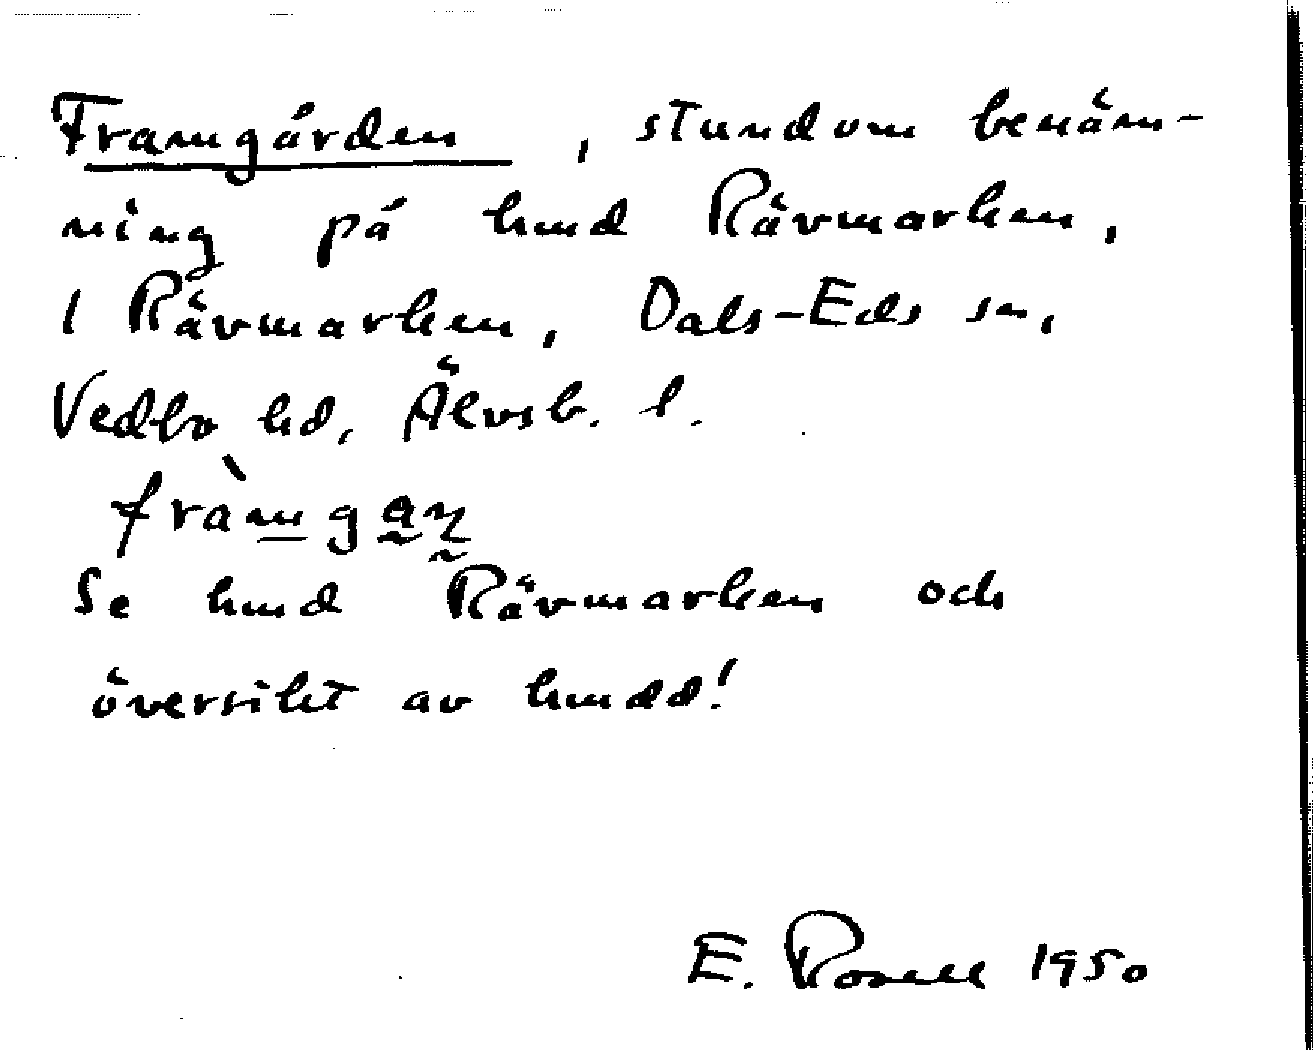 Framgården, stundom benäm-
ning på hmd Rävmarken,
1 Rävmarken, Dals-Eds sn,
Vedbo hd, Älvsb. l.
fràmgan
Se hmd Rävmarken och
översikt av hmdd!
E. Rosell 1950